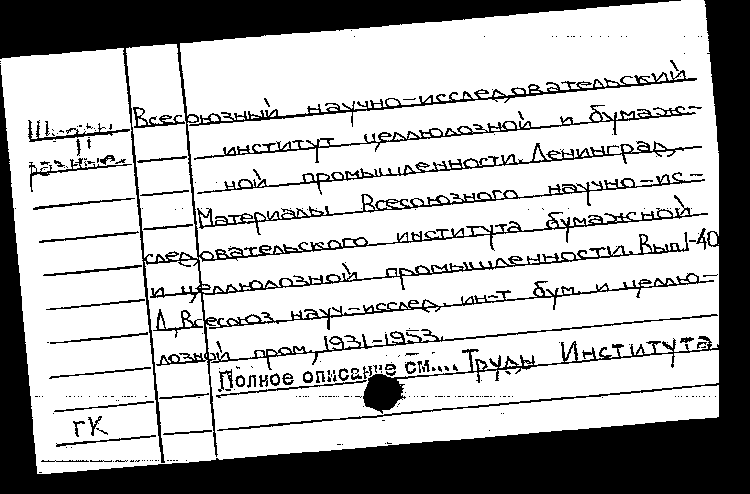 Шифры
разные.
Всесоюзный научно-исследовательский
институт целлюлозной и бумаж-
ной промышленности. Ленинград.
Материалы Всесоюзного научно-ис-
следовательского института бумажной
и целлюлозной промышленности. Вып.1-40
Л., Всесоюз. науч.-исслед. ин-т бум. и целлю-
лозной пром., 1931-1953.
Полное описание см.... Труды Института.
ГК